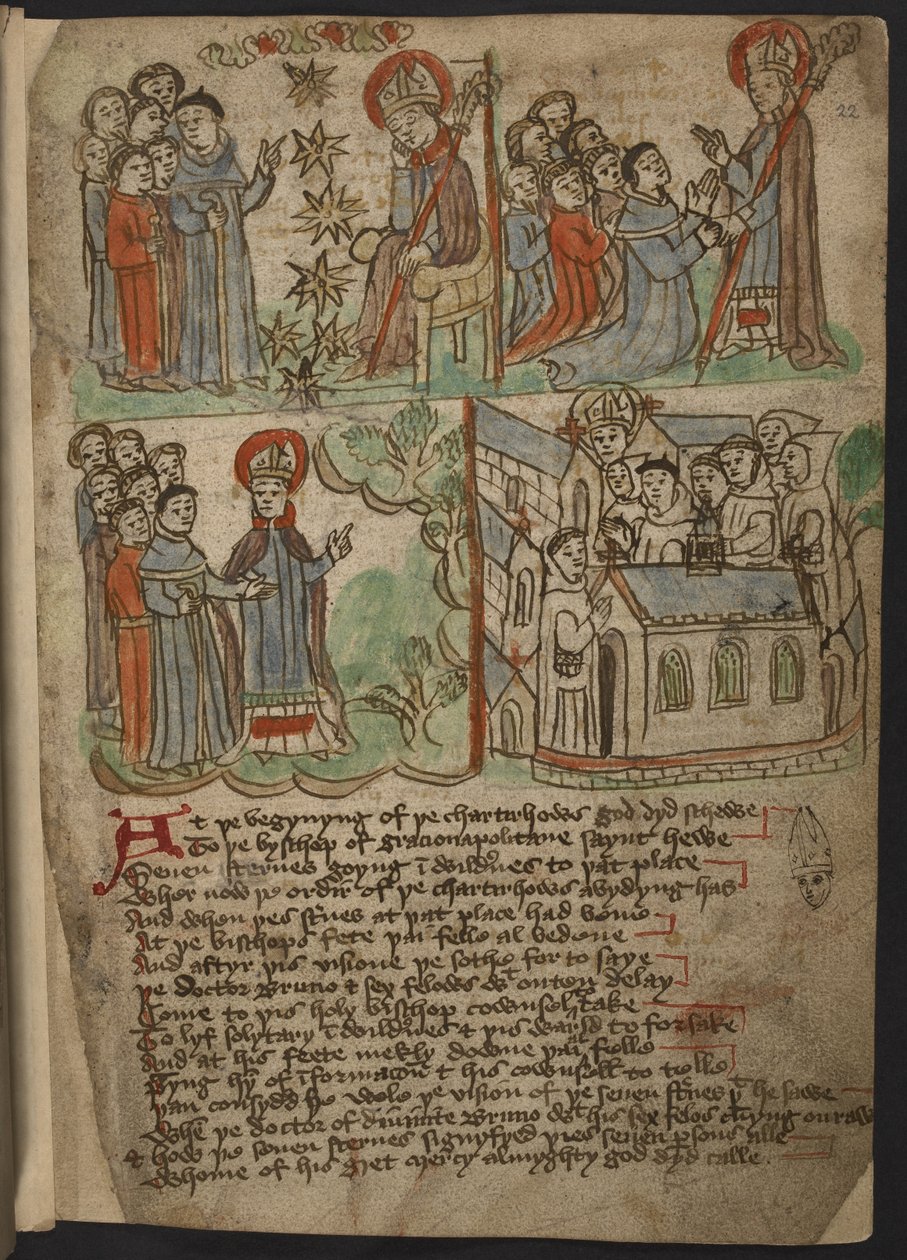 22
At þe begynyng of þe chartirhows god dyd schewe
To þe byschop of gracionapolitane saynt hewe
Seuen sternes goyng ī wildernes to þat place
Wher now þe ordir of þe chartirhows abydyng has
And when þes sternes at þat place had bene
At þe bischops fete þai felle al bedene
And aftyr þis visione þe sothe for to saye
þe doctor Bruno & sex felows wt outen delay
Come to þis holy bischop cownsel to take
To lyf solytary ī wildernes & þis warld to forsake
And at his feete mekly downe þai al felle
Pryng hȳ of īformacōn & his cownsell to telle
þan consydd he wele þe vision of þe seuen sternes þt he sawe
When þe doctor of diuinite Bruno wt his sex felos cūyng on raw
& how þe seuen sternes signyfyed þies seuen psons alle
Whome of his gret mercy almyghty god dyd calle.